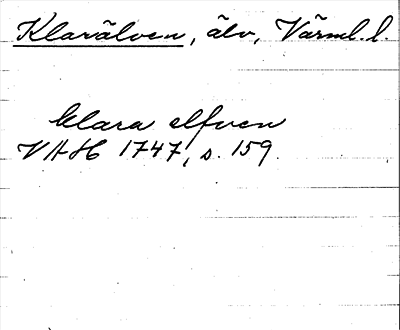 Klarälven, älv, Värml. l.
Clara elfven
VAH 1747, s. 159.